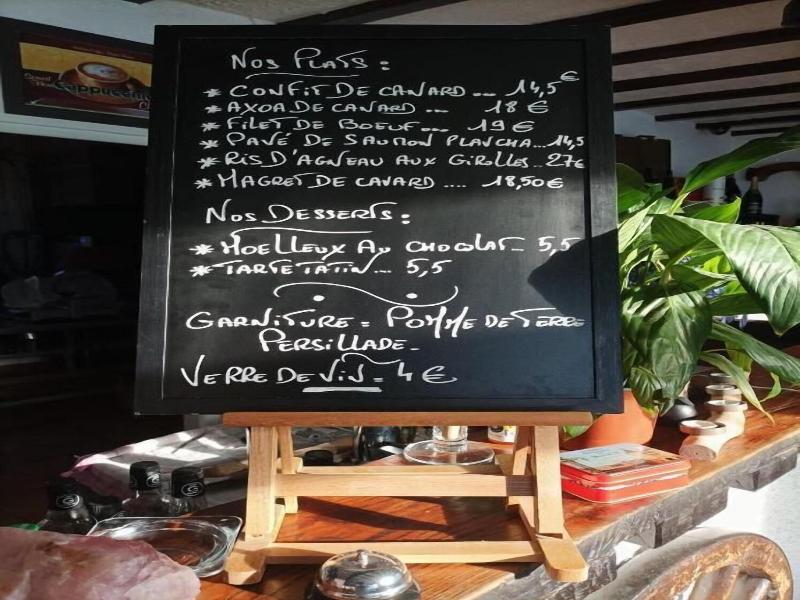 Cappuccino
NOS PLATS :
* CONFIT DE CANARD ... 14,5 €
* AXOA DE CANARD ... 18 €
* FILET DE BOEUF ... 19 €
* PAVÉ DE SAUMON PLANCHA ... 14,5
* RIS D'AGNEAU AUX GIROLLES .. 27€
* MAGRET DE CANARD .... 18,50 €
NOS DESSERTS :
* MOELLEUX AU CHOCOLAT _ 5,5
* TARTE TATIN ... 5,5
GARNITURE = POMME DE TERRE
PERSILLADE _
VERRE DE VIN = 4 €